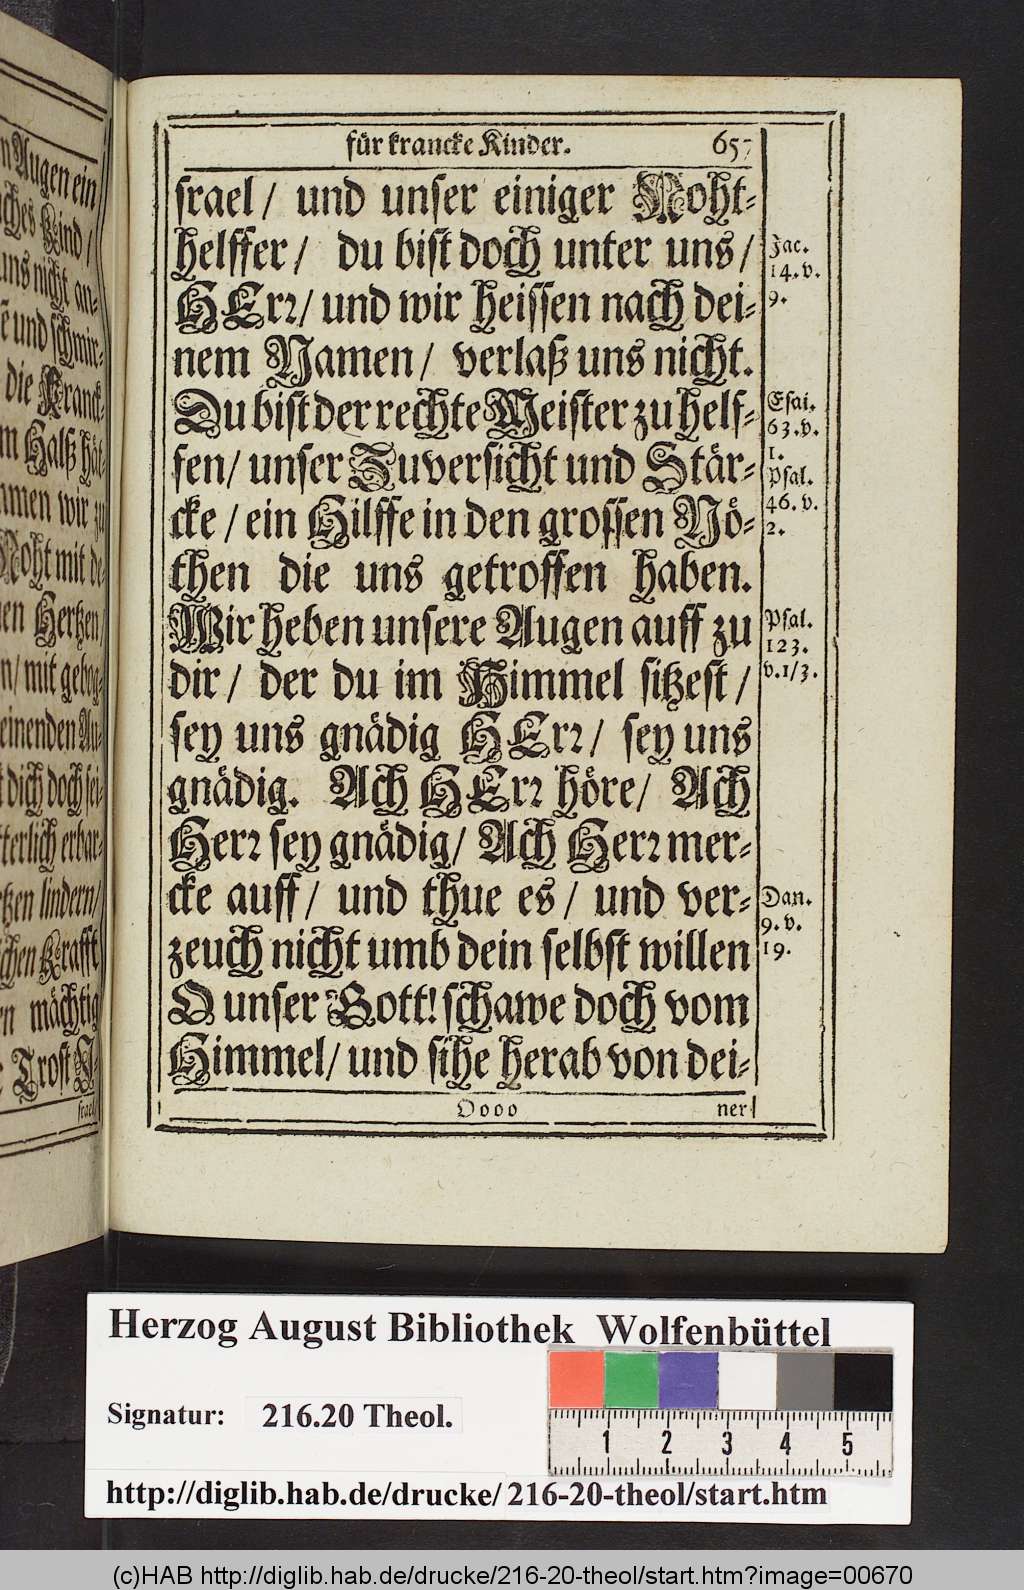 n Augen ein
ches Kind /
uns nicht an-
se und schmir-
die Kranck-
m Halß hät-
men wir zu
Noht mit de-
en Hertzen /
n / mit gebog-
einenden Au-
dich doch sei-
terlich erbar-
tzen lindern /
chen Krafft
n mächtig
Trost J-
srael /
für krancke Kinder. 657
srael / und unser einiger Noht-
helffer / du bist doch unter uns /
HErr / und wir heissen nach dei-
nem Namen / verlaß uns nicht.
Du bist der rechte Meister zu helf-
fen / unser Zuversicht und Stär-
cke / ein Hilffe in den grossen Nö-
then die uns getroffen haben.
Wir heben unsere Augen auff zu
dir / der du im Himmel sitzest /
sey uns gnädig HErr / sey uns
gnädig. Ach HErr höre / Ach
Herr sey gnädig / Ach Herr mer-
cke auff / und thue es / und ver-
zeuch nicht umb dein selbst willen
O unser Gott! schawe doch vom
Himmel / und sihe herab von dei-
Oooo ner
Jac.
14. v.
9.
Esai.
63. v.
1.
Psal.
46. v.
2.
Psal.
123.
v. 1 / 3.
Dan.
9. v.
19.
Herzog August Bibliothek Wolfenbüttel
Signatur: 216.20 Theol.
1 2 3 4 5
http://diglib.hab.de/drucke/216-20-theol/start.htm
(c)HAB http://diglib.hab.de/drucke/216-20-theol/start.htm?image=00670